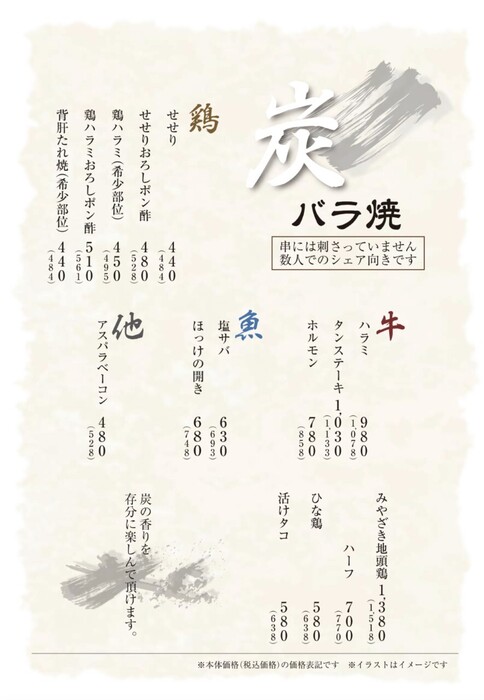 炭
バラ焼
串には刺さっていません
数人でのシェア向きです
鶏
せせり 440(484)
せせりおろしポン酢 480(528)
鶏ハラミ(希少部位) 450(495)
鶏ハラミおろしポン酢 510(561)
背肝たれ焼(希少部位) 440(484)
牛
ハラミ 980(1,078)
タンステーキ 1,030(1,133)
ホルモン 780(858)
魚
塩サバ 630(693)
ほっけの開き 680(748)
他
アスパラベーコン 480(528)
みやざき地頭鶏 1,380(1,518)
ハーフ 700(770)
ひな鶏 580(638)
活けタコ 580(638)
炭の香りを
存分に楽しんで頂けます。
※本体価格(税込価格)の価格表記です ※イラストはイメージです